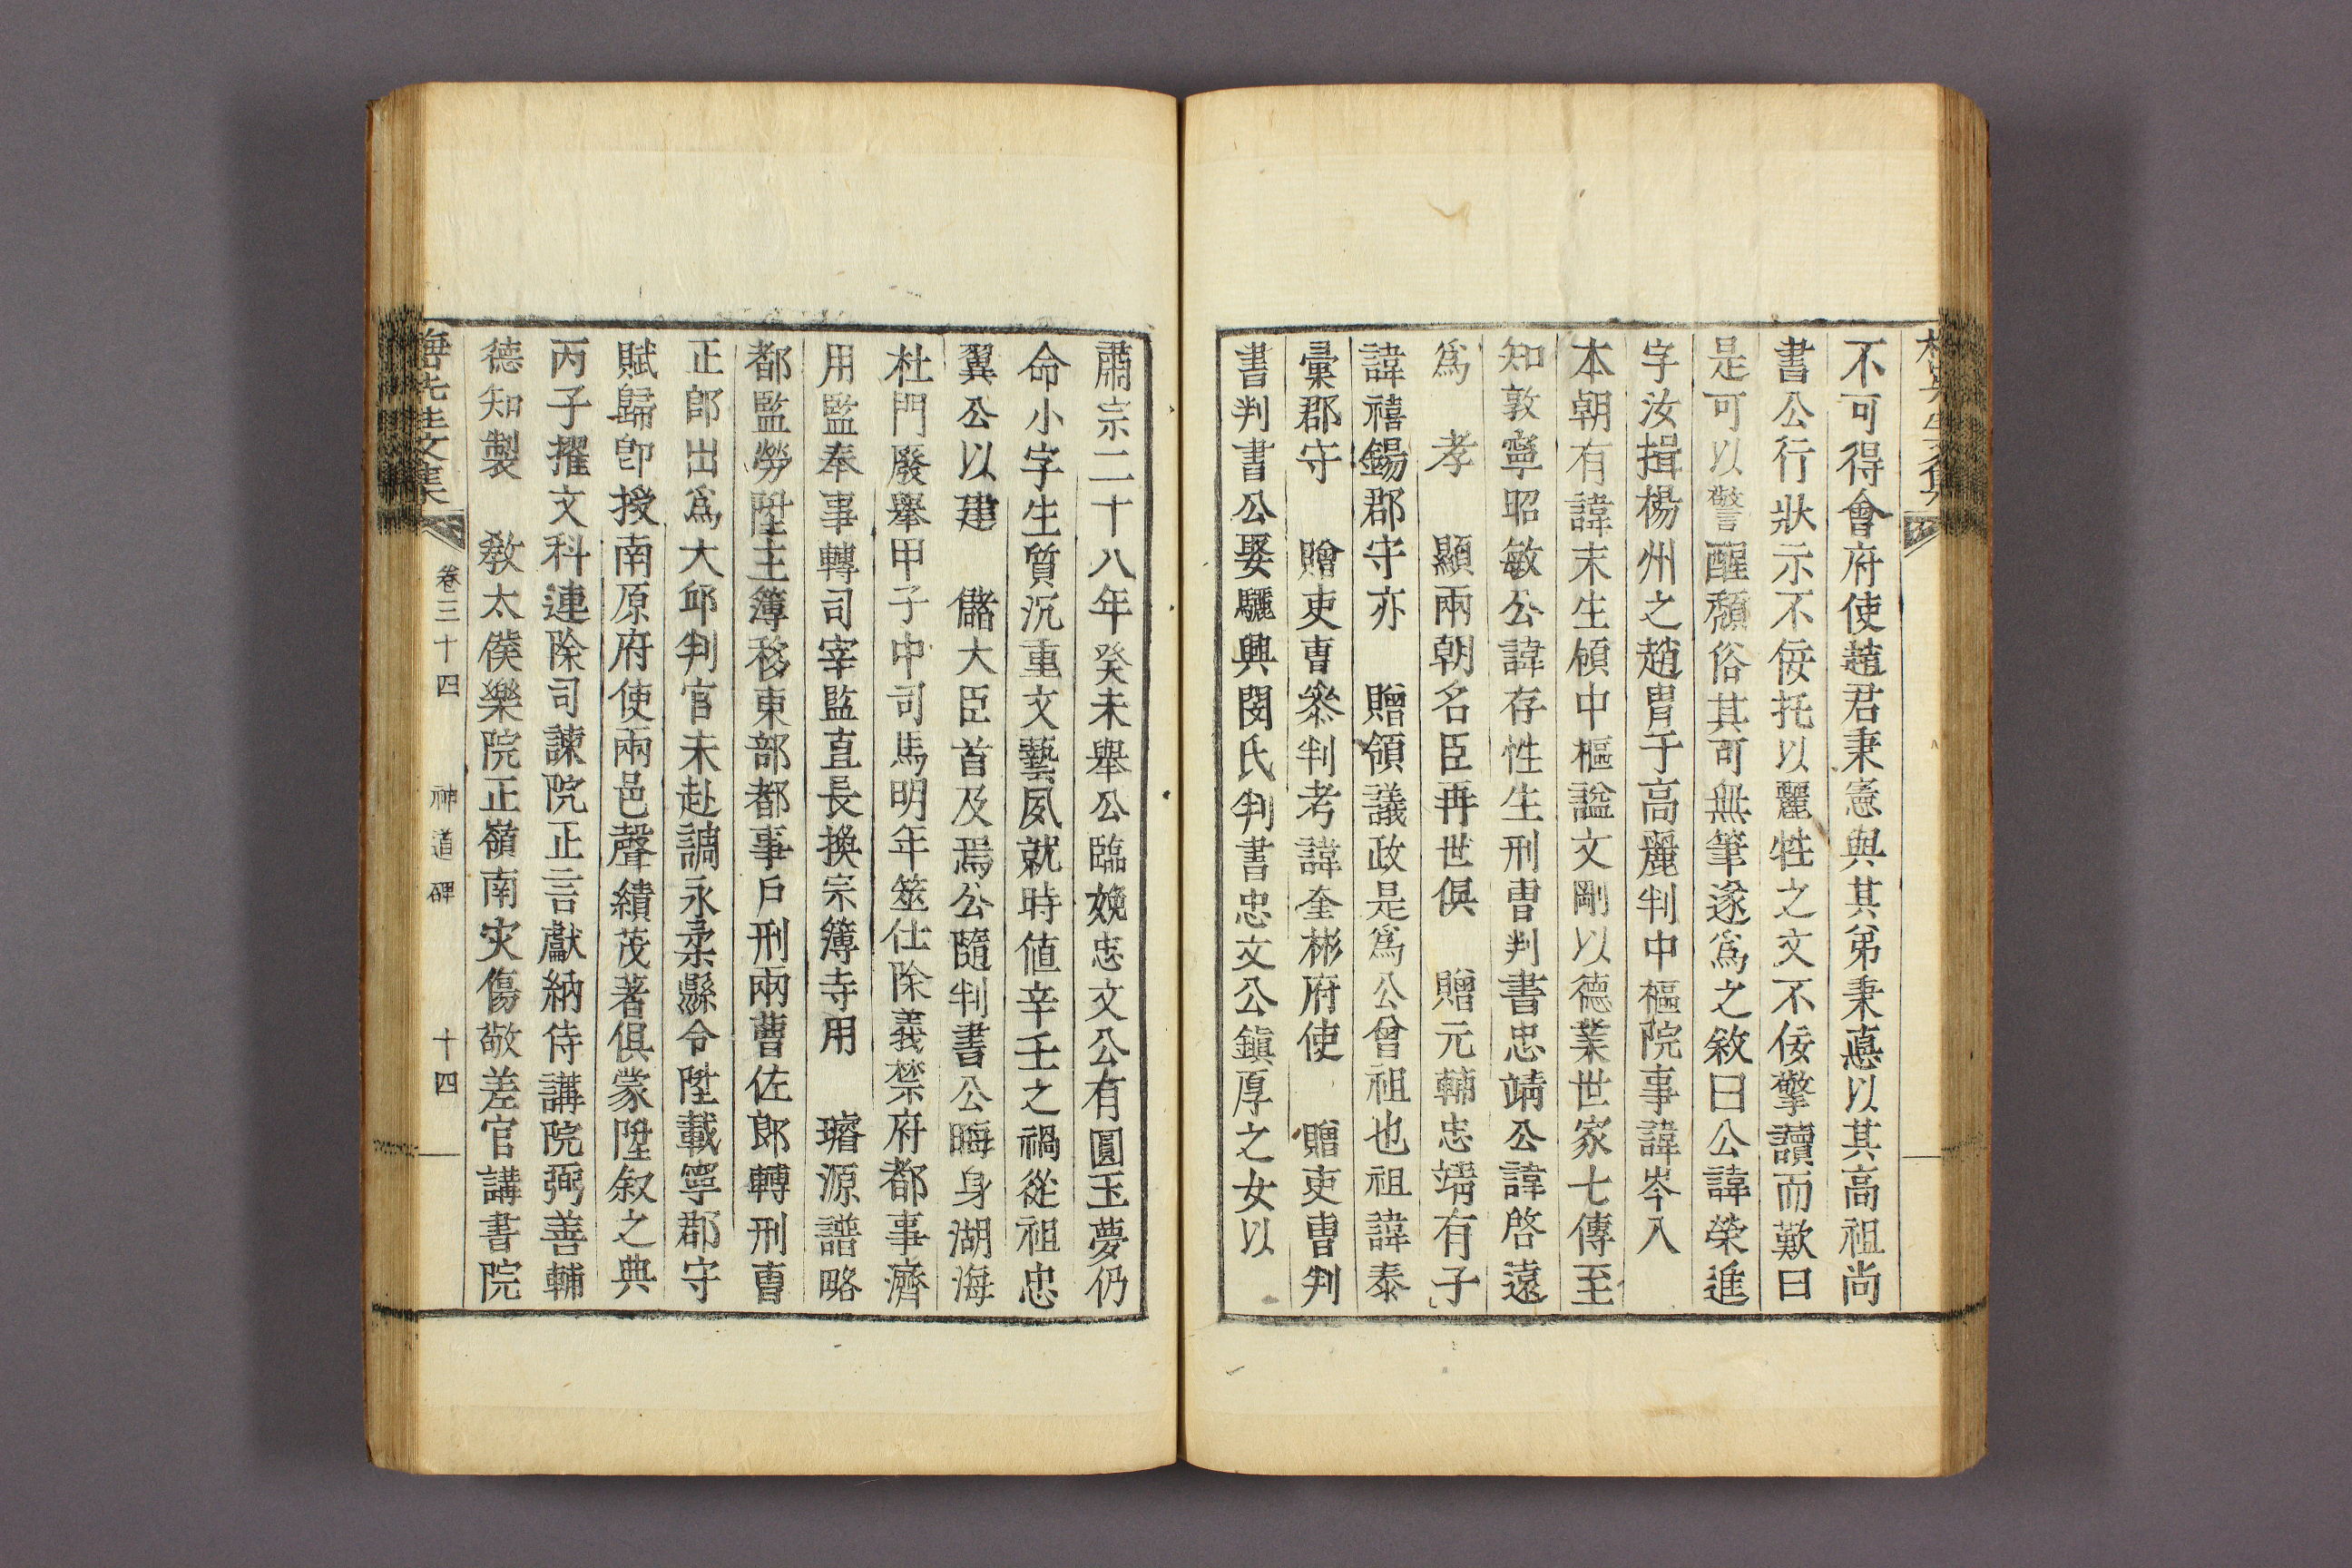 不可得會府使趙君秉憲與其弟秉悳以其高祖尚
書公行狀示不佞托以麗牲之文不佞擎讀而歎曰
是可以警醒頹俗其可無筆遂爲之敘曰公諱榮進
字汝揖楊州之趙胄于高麗判中樞院事諱岑入
本朝有諱末生領中樞諡文剛以德業世家七傳至
知敦寧昭敏公諱存性生刑曹判書忠靖公諱啓遠
爲 孝 顯兩朝名臣再世俱 贈元輔忠靖有子
諱禧錫郡守亦 贈領議政是爲公曾祖也祖諱泰
彙郡守 贈吏曹參判考諱奎彬府使 贈吏曹判
書判書公娶驪興閔氏判書忠文公鎭厚之女以
肅宗二十八年癸未舉公臨娩忠文公有圓玉夢仍
命小字生質沉重文藝夙就時値辛壬之禍從祖忠
翼公以建 儲大臣首及焉公隨判書公晦身湖海
杜門廢舉甲子中司馬明年筮仕除義禁府都事濟
用監奉事轉司宰監直長換宗簿寺用 璿源譜略
都監勞陞主簿移東部都事戶刑兩曹佐郎轉刑曹
正郎出爲大邱判官未赴調永柔縣令陞載寧郡守
賦歸卽授南原府使兩邑聲績茂著俱蒙陞叙之典
丙子擢文科連除司諫院正言獻納侍講院弼善輔
德知製 敎太僕樂院正嶺南灾傷敬差官講書院
先生文集
卷三十四
神道碑
十四